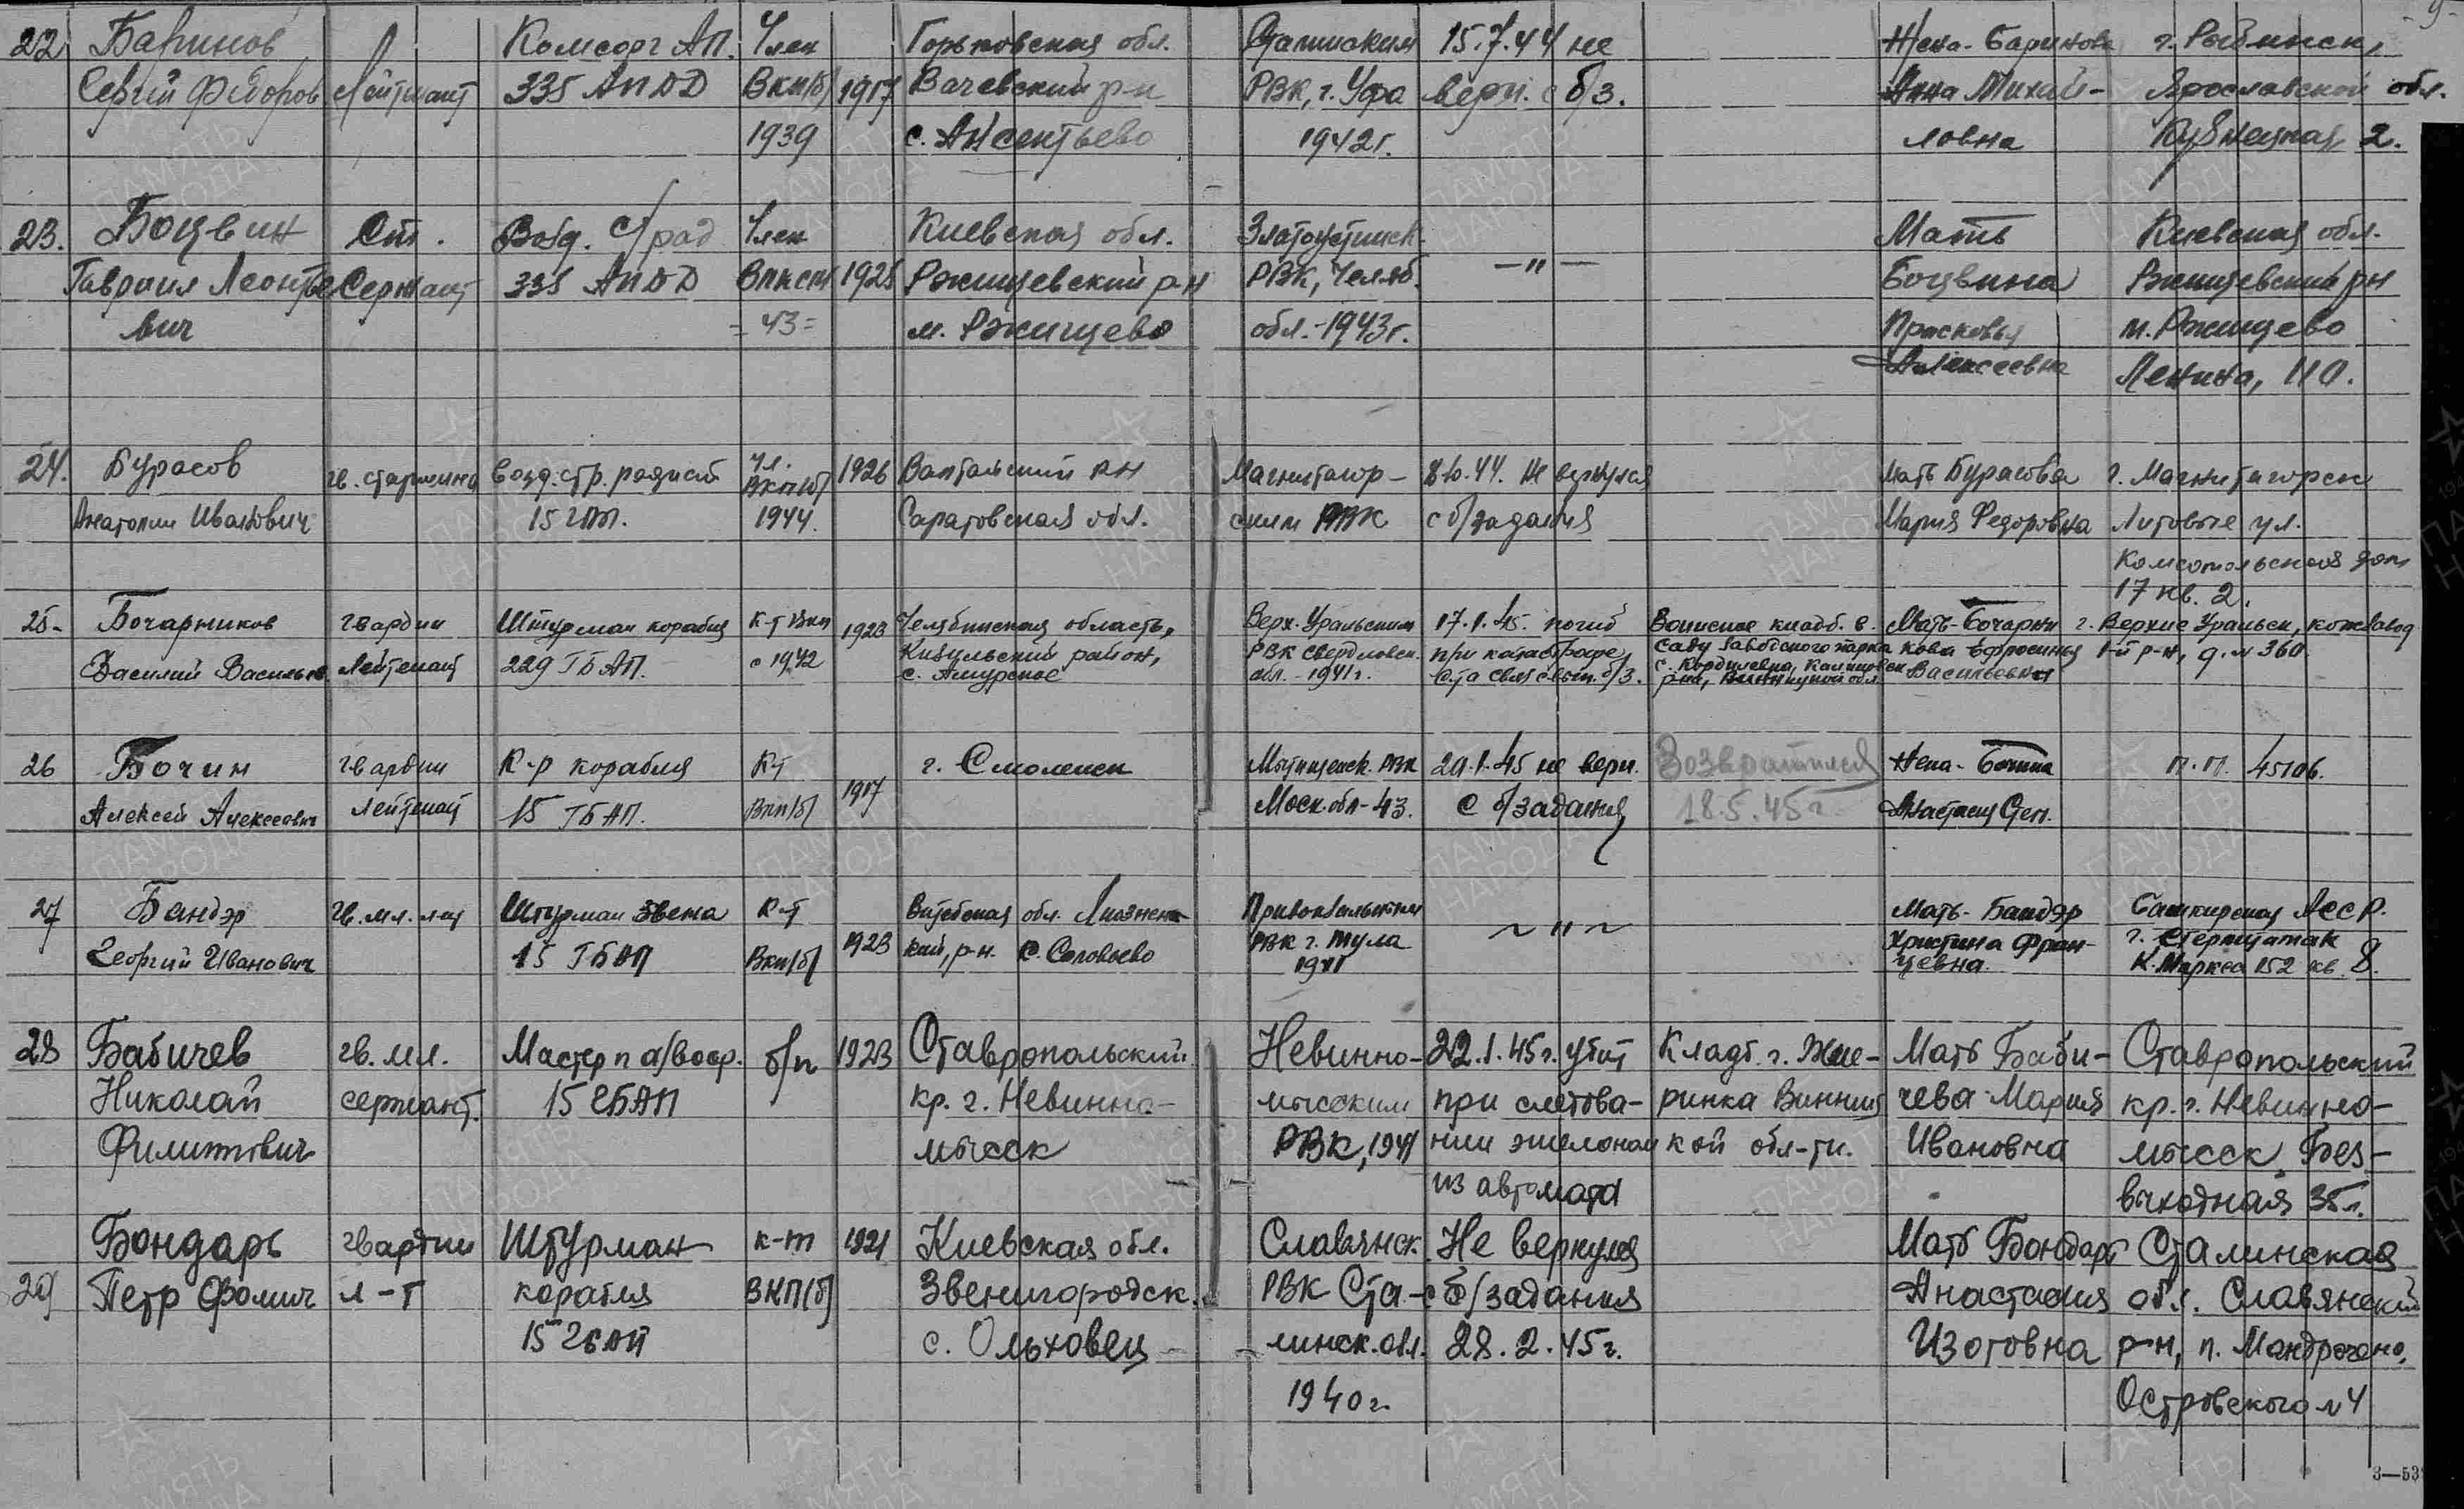 22 Баринов Комсорг АП. Член Горьковская обл. Сталинским 15.7.44 не Жена - Баринова г. Рыбинск,
Сергей Федоров Лейтенант 335 АПДД ВКП(б) 1917 Вачевский р-н РВК, г. Уфа верн. с б/з. Анна Михай- Ярославской обл.
1939 с. Аксентьево 1942г. ловна Кузнецкая, 2.
23. Боцвин Ст. Возд. с/рад Член Киевская обл. Златоустинск. Мать Киевская обл.
Гавриил Леонтье Сержант 335 АПДД ВЛКСМ 1925 Ржищевский р-н РВК, Челяб. -"- Боцвина Ржищевский рн
вич =43= м. Ржищево обл.-1943г. Прасковья м. Ржищево
Алексеевна Ленина, 110.
24. Бурасов гв. старшина возд. стр. радист чл. ВКП(б) 1926 Саратовская обл. Магнитогор- 8.10.44. Не вернулся Мать Бурасова г. Магнитогорск
Анатолий Иванович 15 1944. ским РВК с б/задания Мария Федоровна ул.
Комсомольская дом
17 кв. 2.
25- Бочарников гвардии Штурман корабля К-т ВКП 1923 Челябинская область, Верх. Уральским 17.1.45. погиб Воинское кладб. в. Мать-Бочарни г. Верхне Уральск, кожзавод
Василий Васильев Лейтенант 229 ГБАП. с 1942 Кизильский район, РВК Свердловск. при катастрофе, саду Заводского парка кова Ефросинья 1-й р-н, д. № 360.
с. Амурское обл. - 1941г. с. Кордилевка, Калиновск Васильевна
26 Бочин гвардии К-р корабля К-т г. Смоленск Мытищенск. РВК 29.1.45 не верн. Возвратился Жена- Бочина п.п. 45106.
Алексей Алексеевич лейтенант 15 ГБАП. ВКП/б/ 1917 Моск. обл-43. с б/задания 18.5.45г Анастасия Степ.
27 Бандэр гв. мл. лет Штурман звена К-т Витебская обл. Лиознен- Привокзальным ~ " ~ Мать- Бандэр Башкирская АССР.
Георгий Иванович 15 ГБАП ВКП/б/ 1923 кий, р-н. с. Соловьево РВК г. Тула Христина Фран- г. Стерлитамак
1941 цевна. К. Маркса 152 кв 8.
28 Бабичев гв. мл. Мастер п а/воор. б/п 1923 Ставропольский Невинно- 22.1.45г. убит Кладб. г. Жме- Мать Баби- Ставропольский
Николай сержант. 15 ГБАП кр. г. Невинно- мысским при следова- ринка Винниц чева Мария кр. г. Невинно-
Филиппович мысск РВК, 1941 нии эшелоном кой обл-ти. Ивановна мысск, Без-
из автомата выходная 35
Бондарь гвардии Штурман к-т 1921 Киевская обл. Славянск. Не вернулся Мать Бондарь Сталинская
29 Петр Фомич л-т корабля ВКП(б) Звенигородск. РВК Ста- с б/задания Анастасия обл. Славянский
15 гбап с. Ольховец линск. обл. 28.2.45г. Изотовна р-н, п.
1940г. Островского № 4
3—53